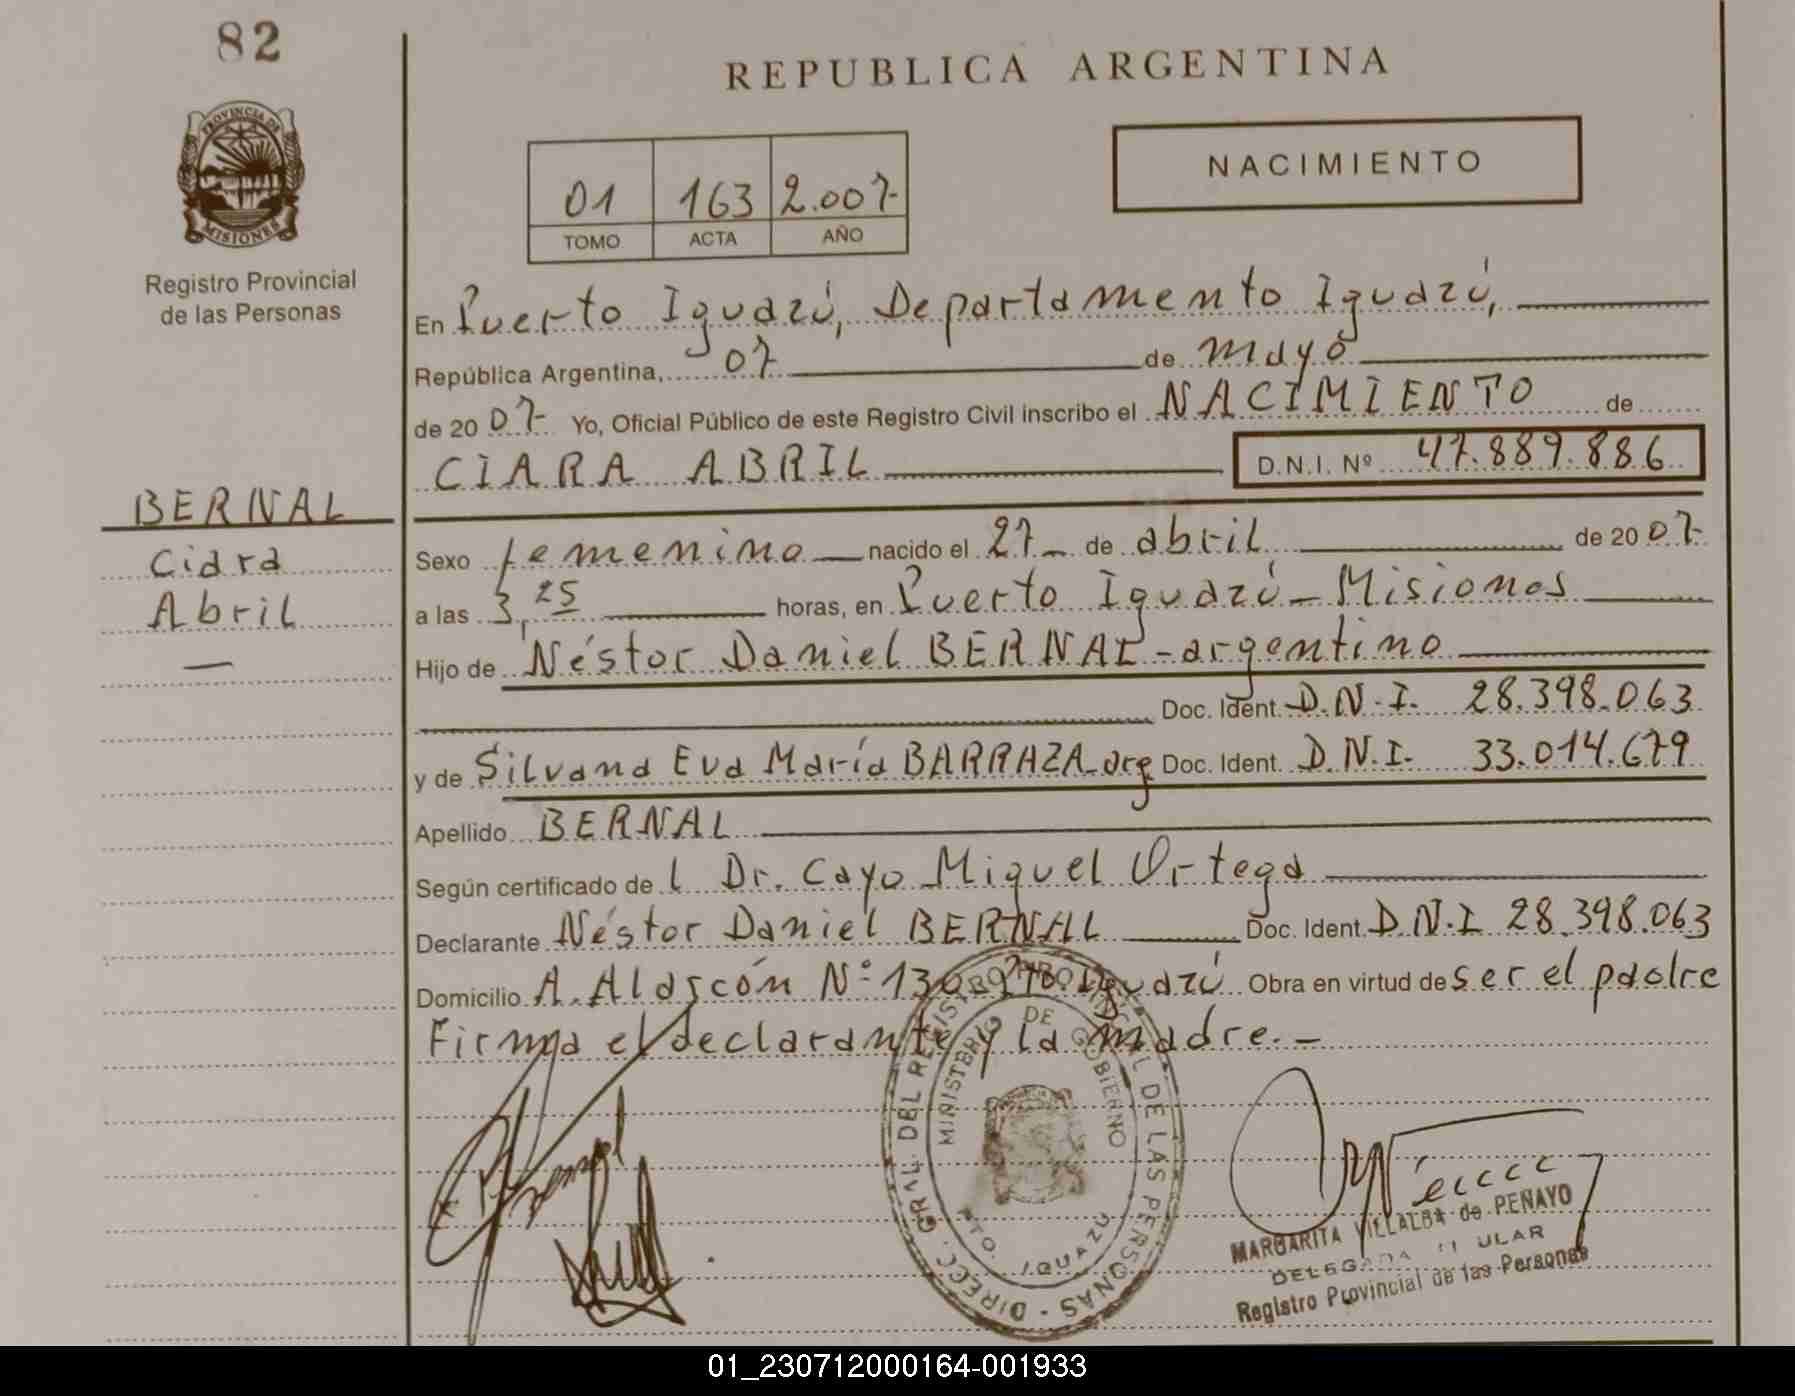 82
REPUBLICA ARGENTINA
PROVINCIA DE
MISIONES
Registro Provincial
de las Personas
01 163 2.007-
TOMO ACTA AÑO
NACIMIENTO
En Puerto Iguazú, Departamento Iguazú,
República Argentina, 07 de mayo
de 2007- Yo, Oficial Público de este Registro Civil inscribo el NACIMIENTO de
CIARA ABRIL D.N.I. Nº 47.889.886
BERNAL
Ciara
Abril
Sexo femenino nacido el 27 de abril de 2007-
a las 3,25 horas, en Puerto Iguazú - Misiones
Hijo de Néstor Daniel BERNAL - argentino
Doc. Ident. D.N.I. 28.398.063
y de Silvana Eva María BARRAZA-arg Doc. Ident. D.N.I. 33.014.679
Apellido BERNAL
Según certificado del Dr. Cayo Miguel Ortega
Declarante Néstor Daniel BERNAL Doc. Ident. D.N.I 28.398.063
Domicilio A. Alarcón Nº 130 Iguazú Obra en virtud de ser el padre
Firma el declarante y la madre.-
DIRECC. GRAL DEL REGISTRO PROVINCIAL DE LAS PERSONAS
MINISTERIO DE GOBIERNO
DTO. IGUAZU
MARGARITA VILLALBA de PENAYO
Registro Provincial de las Personas
01_230712000164-001933